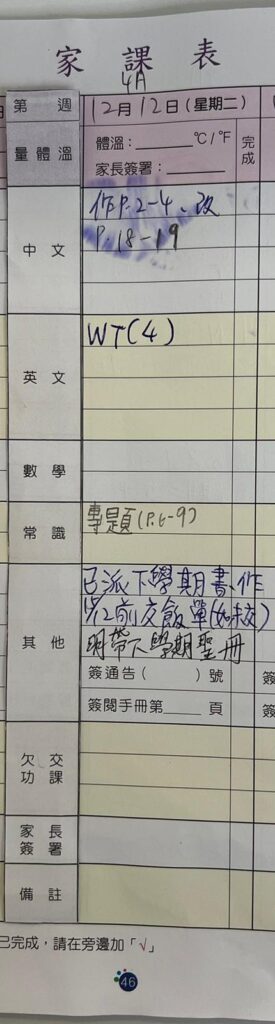 家課表
4A
第 週 12月12日(星期二)
量體溫 體溫:______℃/℉ 完成
家長簽署:______
中文 作P.2-4、改
P.18-19
英文 WT(4)
數學
常識 專題(P.6-9)
其他 已派下學期書、作
前交飯單(如未交)
明帶下學期聖冊
簽通告( )號 簽
簽閱手冊第____頁 簽
欠交功課
家長簽署
備註
已完成,請在旁邊加「√」
46